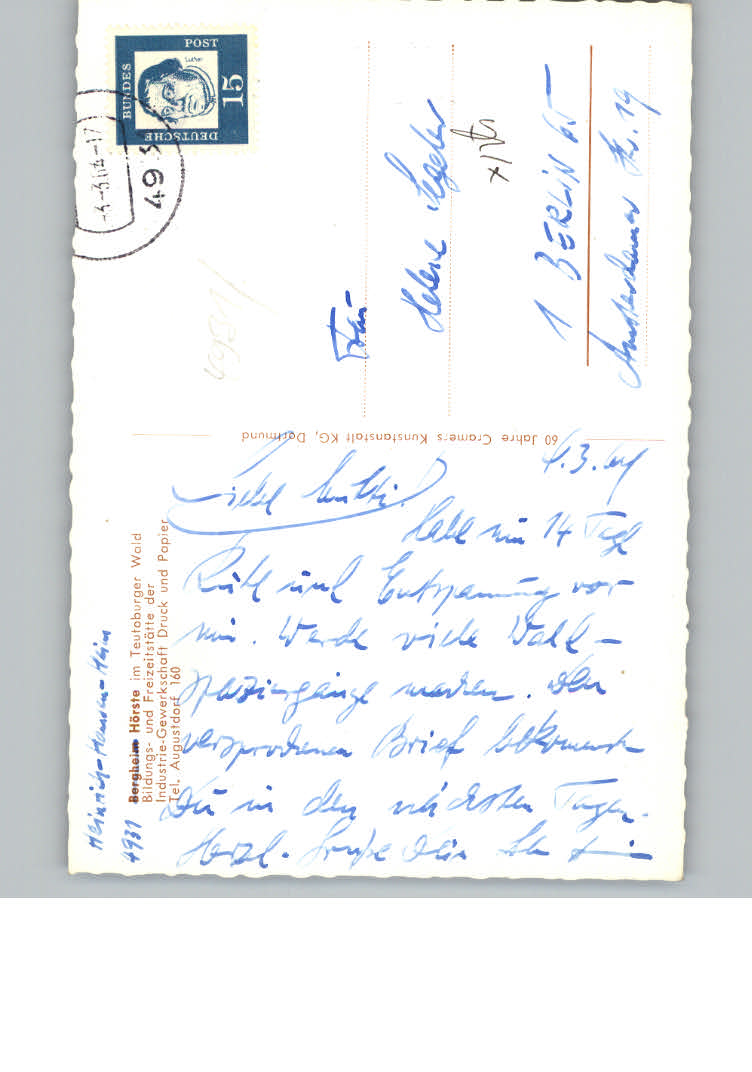 DEUTSCHE
BUNDES
POST
15
Luther
493
-4.-3.64-17
Frau
Helene
1 BERLIN 65
Amsterdamer Str. 19
60 Jahre Cramers Kunstanstalt KG, Dortmund
4.3.64
Liebe Mutti!
Habe nun 14 Tage
Ruhe und Entspannung vor
mir. Werde viele Wald-
spaziergänge machen. Den
versprochenen Brief bekommst
Du in den nächsten Tagen.
Herzl. Grüße Dein
Heinrich-Hansen-Heim
4931 Bergheim Hörste im Teutoburger Wald
Bildungs- und Freizeitstätte der
Industrie-Gewerkschaft Druck und Papier
Tel. Augustdorf 160